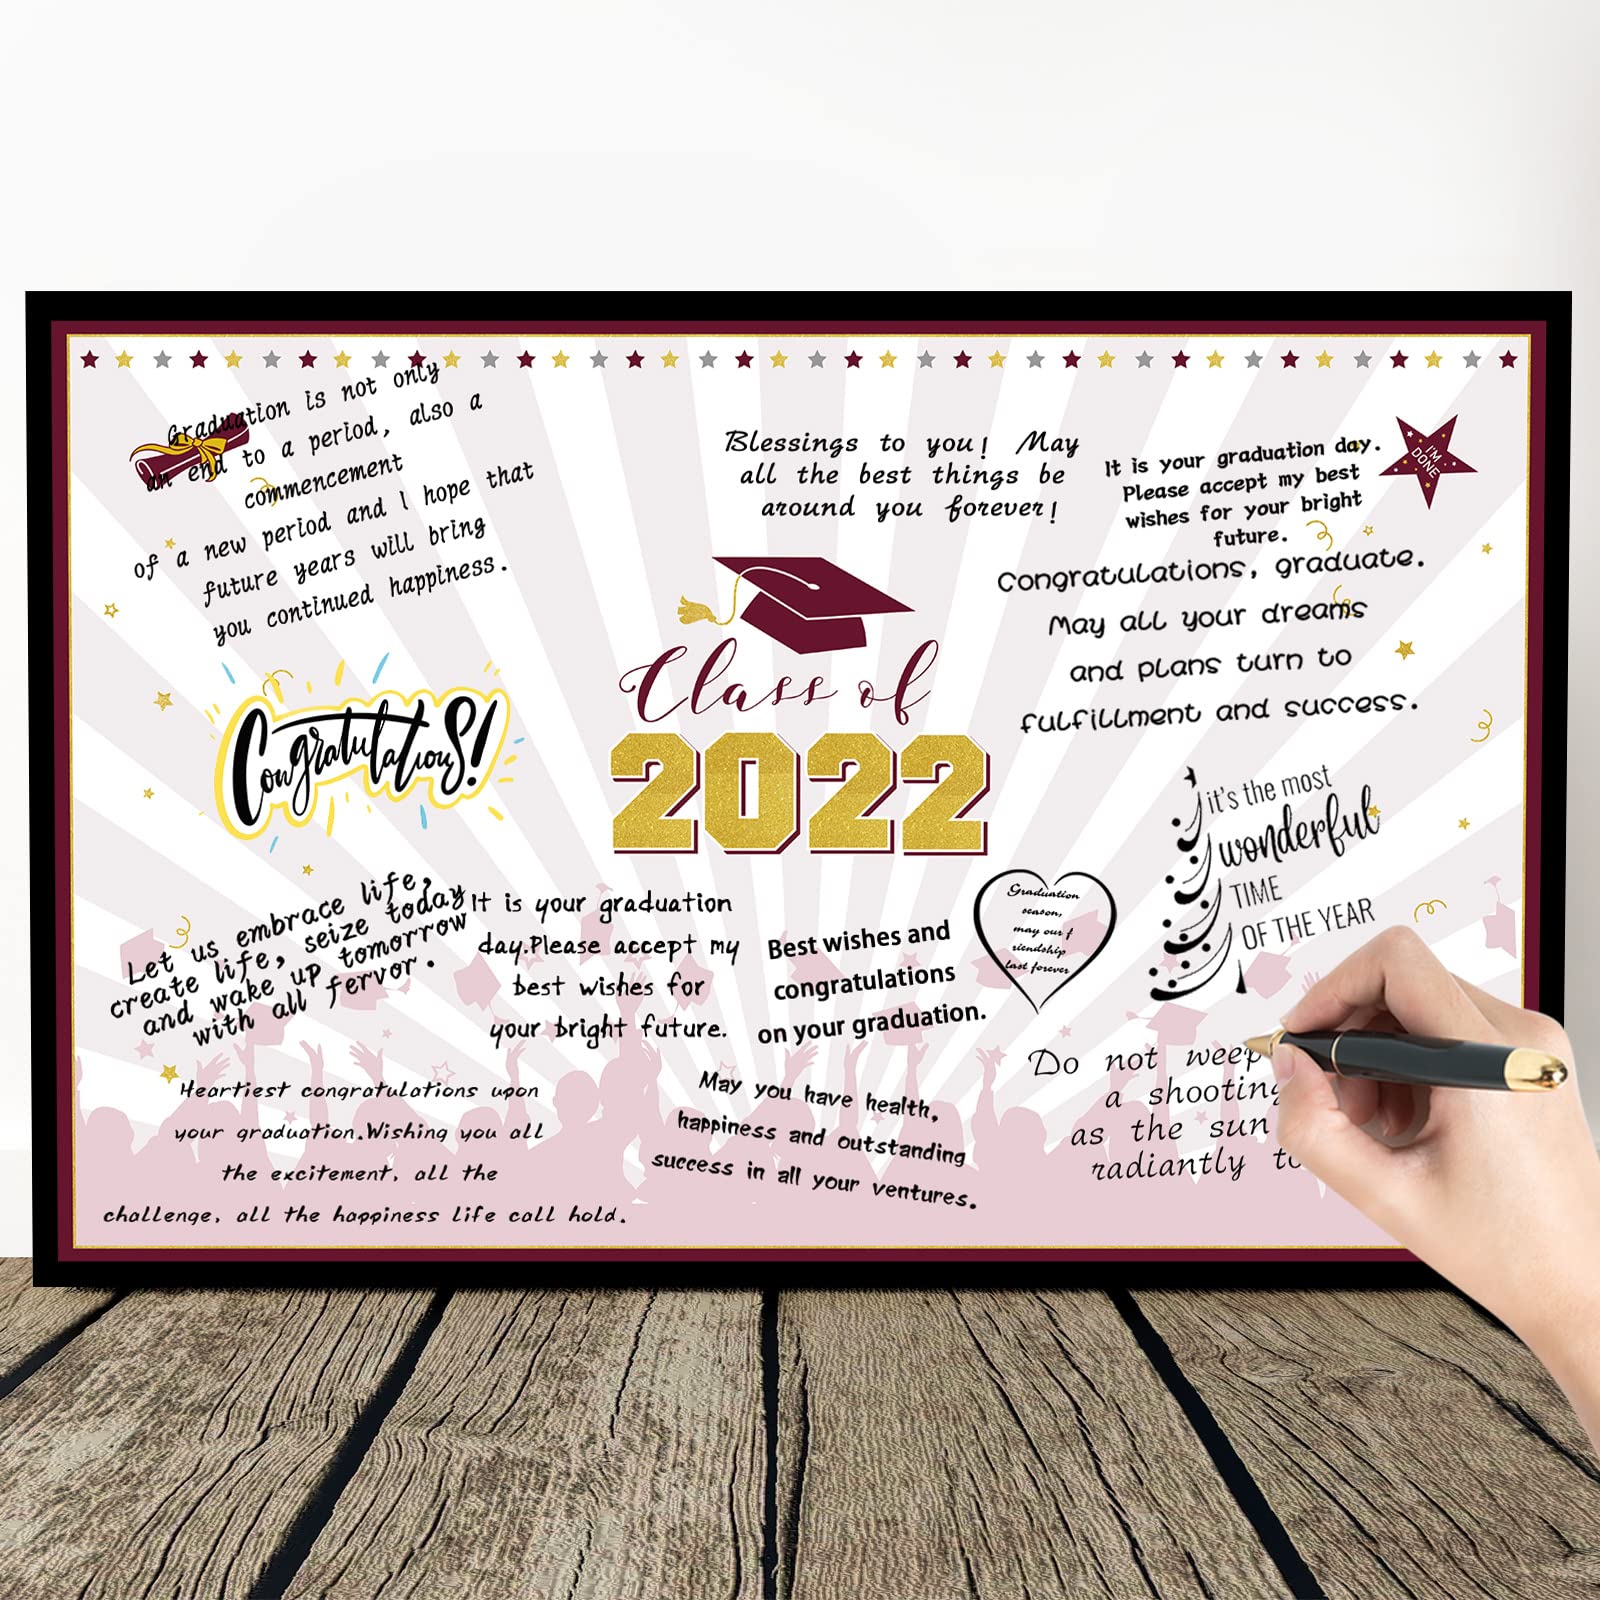 Graduation is not only
an end to a period, also a
commencement
of a new period and I hope that
future years will bring
you continued happiness.
Blessings to you! May
all the best things be
around you forever!
It is your graduation day.
Please accept my best
wishes for your bright
future.
I'M
DONE
Congratulations, graduate.
May all your dreams
and plans turn to
fulfillment and success.
Congratulations!
Class of
2022
it's the most
wonderful
TIME
OF THE YEAR
Let us embrace life,
create life, seize today
and wake up tomorrow
with all fervor.
It is your graduation
day.Please accept my
best wishes for
your bright future.
Best wishes and
congratulations
on your graduation.
Graduation
season,
may our f
riendship
last forever
Heartiest congratulations upon
your graduation.Wishing you all
the excitement, all the
challenge, all the happiness life call hold.
May you have health,
happiness and outstanding
success in all your ventures.
Do not weep
a shooting
as the sun
radiantly to